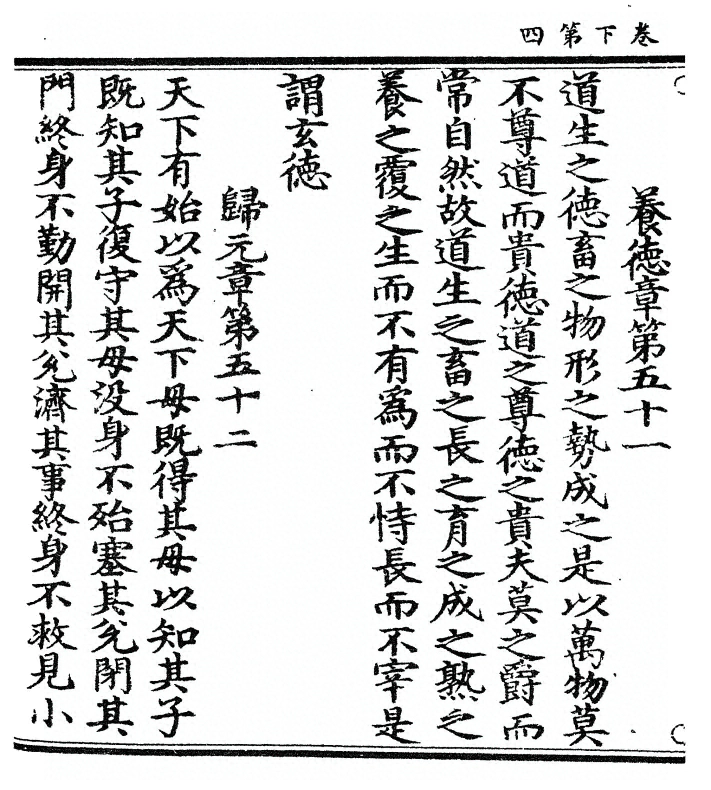 卷下第四
養德章第五十一
道生之德畜之物形之勢成之是以萬物莫
不尊道而貴德道之尊德之貴夫莫之爵而
常自然故道生之畜之長之育之成之熟之
養之覆之生而不有爲而不恃長而不宰是
謂玄德
歸元章第五十二
天下有始以爲天下母既得其母以知其子
既知其子復守其母没身不殆塞其兊閉其
門終身不勤開其兊濟其事終身不救見小